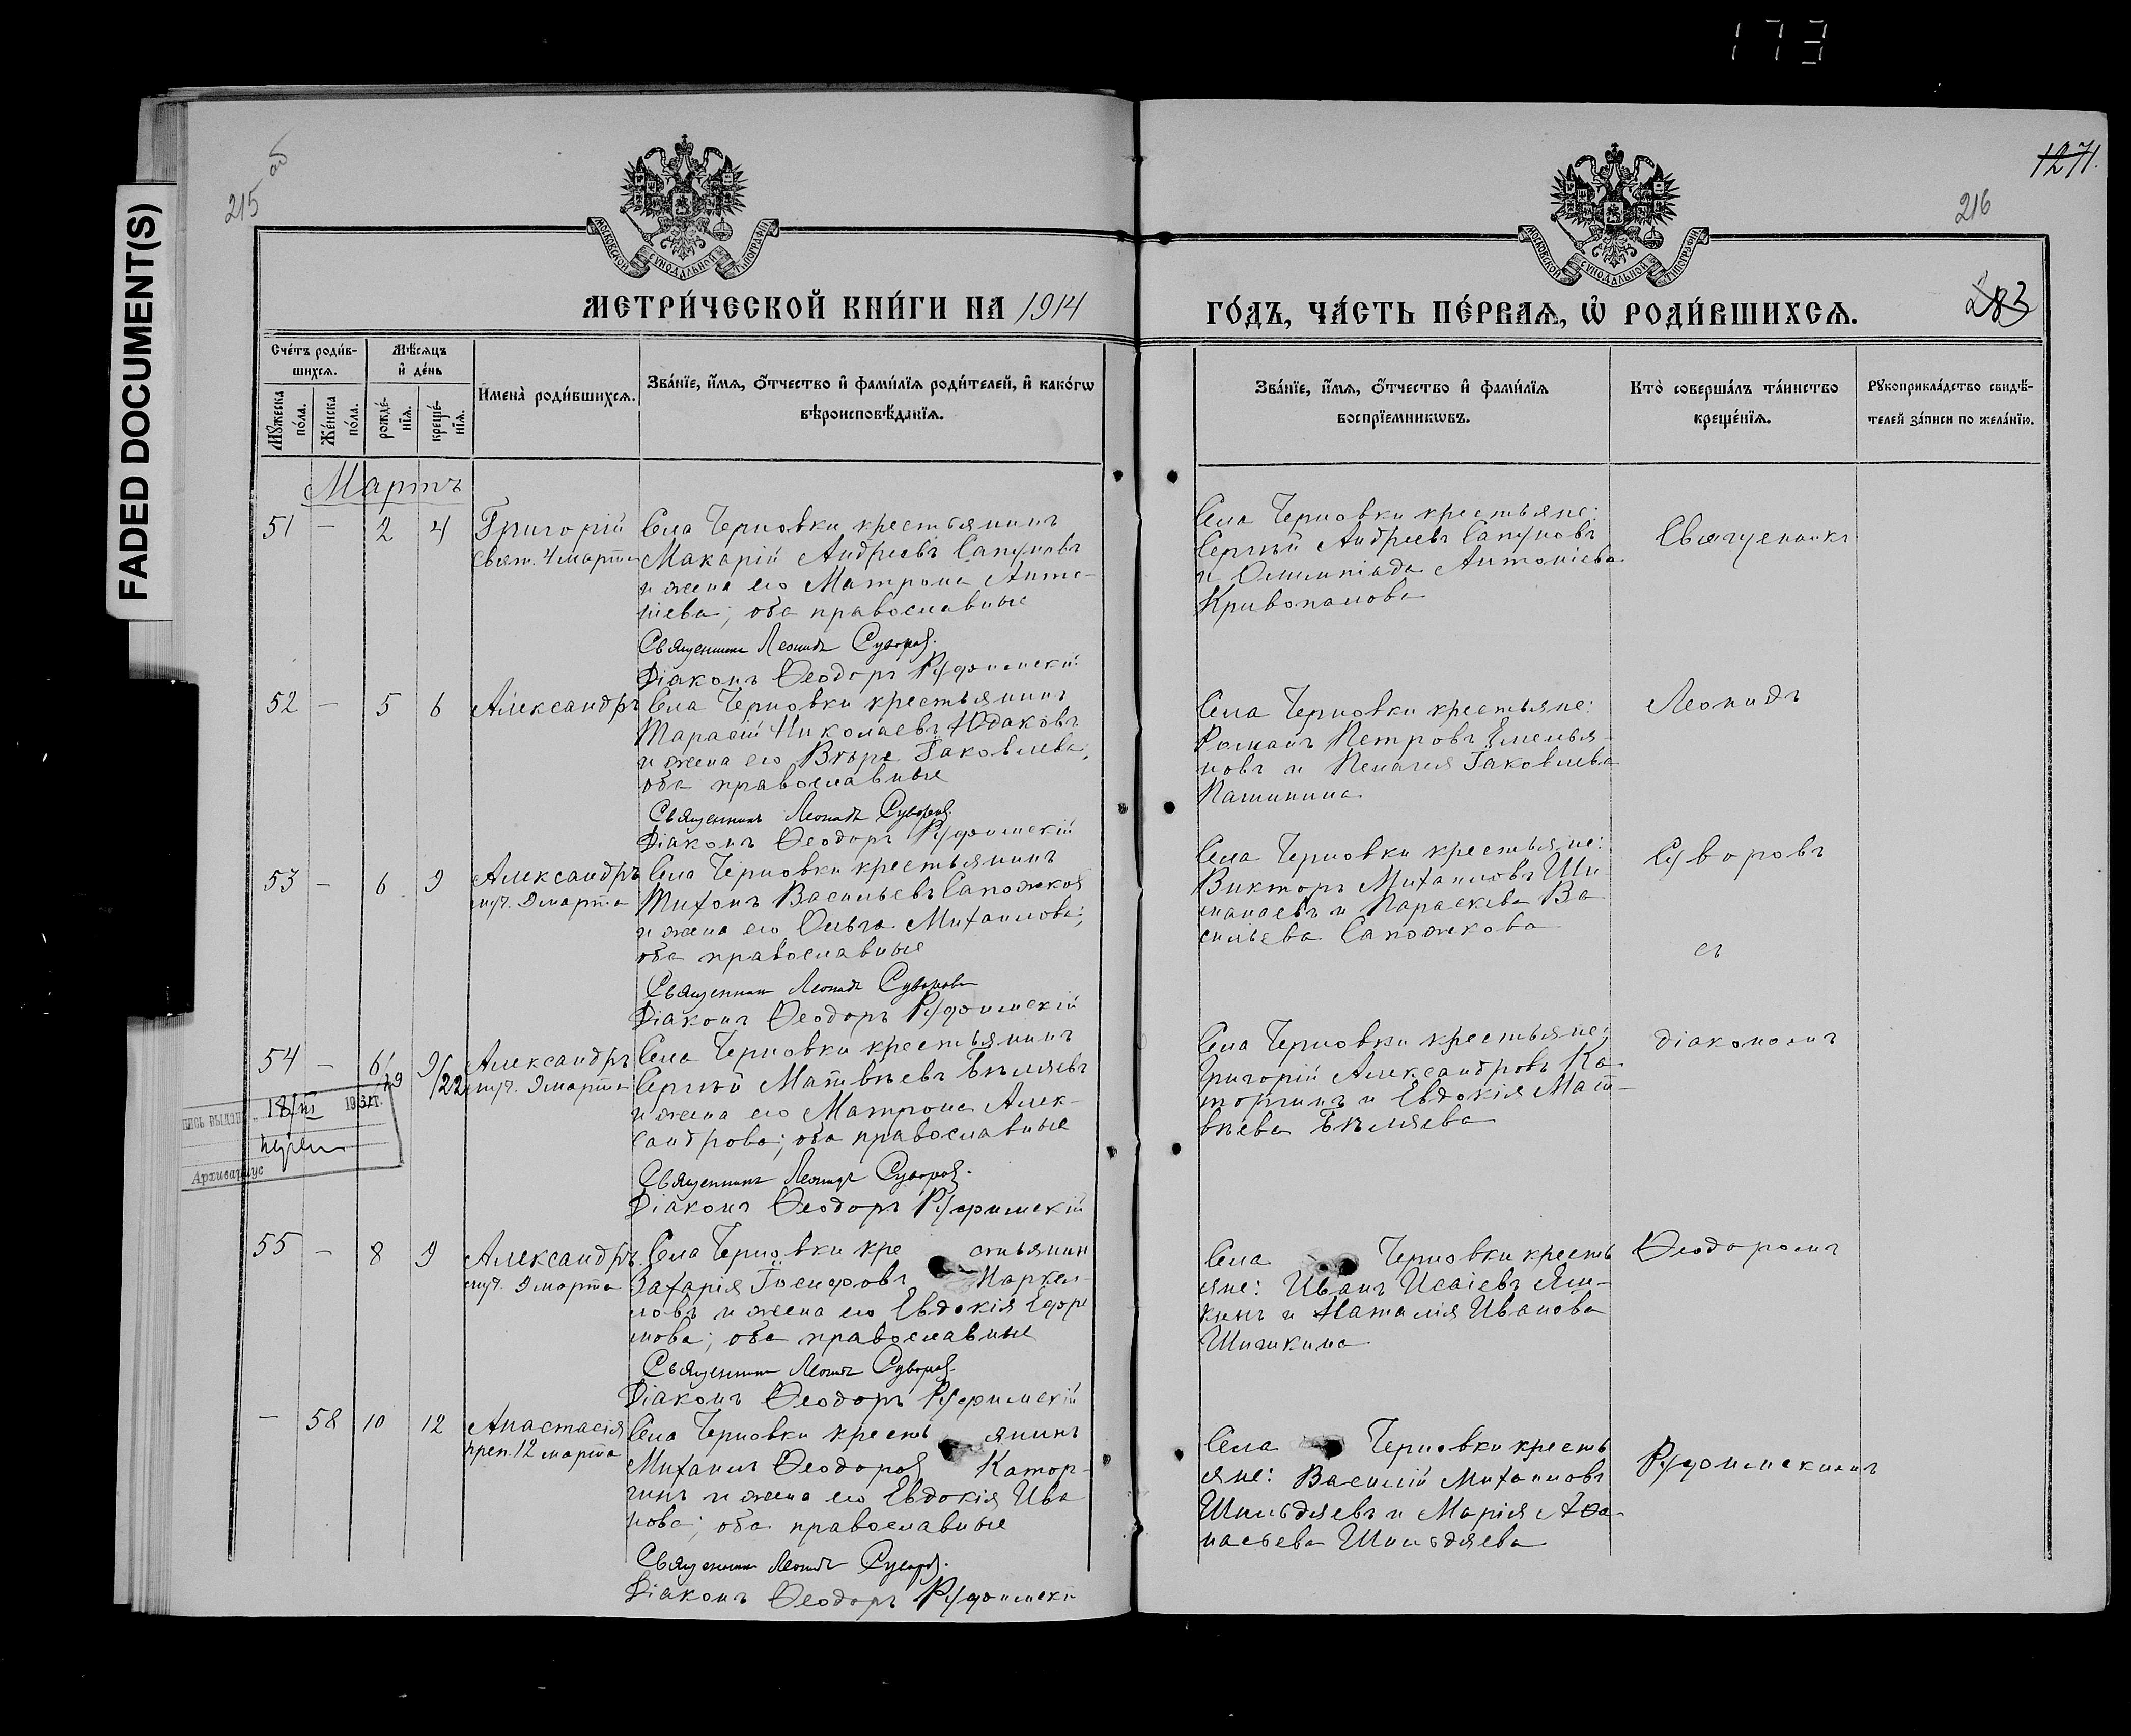 173
FADED DOCUMENT(S)
215 об
1271.
216
283
МОСКОВСКОЙ СѴНОДАЛЬНОЙ ТИПОГРАФІИ
МОСКОВСКОЙ СѴНОДАЛЬНОЙ ТИПОГРАФІИ
МЕТРИ́ЧЕСКОЙ КНИ́ГИ НА 1914
ГО́ДЪ, ЧА́СТЬ ПЕ́РВАѦ, Ѡ҆ РОДИ́ВШИХСѦ.
Сче́тъ роди́в-
шихсѧ.
Мꙋ́жеска
по́ла.
Же́нска
по́ла.
Мѣ́сѧцъ
и҆ де́нь
рожде́-
нїѧ.
креще́-
нїѧ.
И҆мена̀ роди́вшихсѧ.
Зва́нїе, и҆́мѧ, ѻ҆́тчество и҆ фами́лїѧ роди́телей, и҆ како́гѡ
вѣроисповѣ́данїѧ.
Зва́нїе, и҆́мѧ, ѻ҆́тчество и҆ фами́лїѧ
воспрїе́мникѡвъ.
Кто̀ соверша́лъ та́инство
креще́нїѧ.
Рꙋкоприкла́дство свидѣ́-
телей за́писи по жела́нїю.
Мартъ
51 — 2 4 Григорій
свят. 4 марта
Села Черновки крестьянинъ
Макарій Андреевъ Сапуновъ
и жена его Матрона Анто-
ніева; оба православные
Священникъ Леонидъ Суворовъ.
Діаконъ Ѳеодоръ Руфимскій
Села Черновки крестьяне:
Сергѣй Андреевъ Сапуновъ
и Олимпіада Антоніева
Кривопалова
Священникъ
52 — 5 6 Александръ
Села Черновки крестьянинъ
Тарасій Николаевъ Юдаковъ
и жена его Вѣра Іаковлева;
оба православные
Священникъ Леонидъ Суворовъ.
Діаконъ Ѳеодоръ Руфимскій
Села Черновки крестьяне:
Романъ Петровъ Емелья-
новъ и Пелагея Іаковлева
Пашинина
Леонидъ
53 — 6 9 Александръ
муч. 9 марта
Села Черновки крестьянинъ
Тихонъ Васильевъ Сапожков
и жена его Ольга Михаилова;
оба православные
Священникъ Леонидъ Суворовъ
Діаконъ Ѳеодоръ Руфимскій
Села Черновки крестьяне:
Викторъ Михаиловъ Ши-
манаевъ и Параскева Ва
сильева Сапожкова
Суворовъ
съ
54 — 6/19 9/22 Александръ
муч. 9 марта
Села Черновки крестьянинъ
Сергѣй Матвѣевъ Бѣляевъ
и жена его Матрона Алек-
сандрова; оба православные
Священникъ Леонидъ Суворовъ.
Діаконъ Ѳеодоръ Руфимскій
Села Черновки крестьяне:
Григорій Александровъ Ка-
торгинъ и Евдокія Мат-
вѣева Бѣляева
діакономъ
18/III
Архивариус
55 — 8 9 Александръ
муч. 9 марта
Села Черновки кре стьянин
Захарія Іосифовъ Маркел-
ловъ и жена его Евдокія Ефре
мова; оба православные
Священникъ Леонидъ Суворовъ.
Діаконъ Ѳеодоръ Руфимскій
Села Черновки кресть
яне: Иванъ Исаіевъ Ям-
кинъ и Наталія Иванова
Шишкина
Ѳеодоромъ
— 58 10 12 Анастасія
преп. 12 марта
Села Черновки кресть янинъ
Михаилъ Ѳеодоровъ Катор-
гинъ и жена его Евдокія Ива
нова; оба православные
Священникъ Леонидъ Суворовъ.
Діаконъ Ѳеодоръ Руфимскій
Села Черновки кресть
яне: Василій Михаиловъ
Шильдяевъ и Марія Аѳа-
насьева Шильдяева
Руфимскимъ